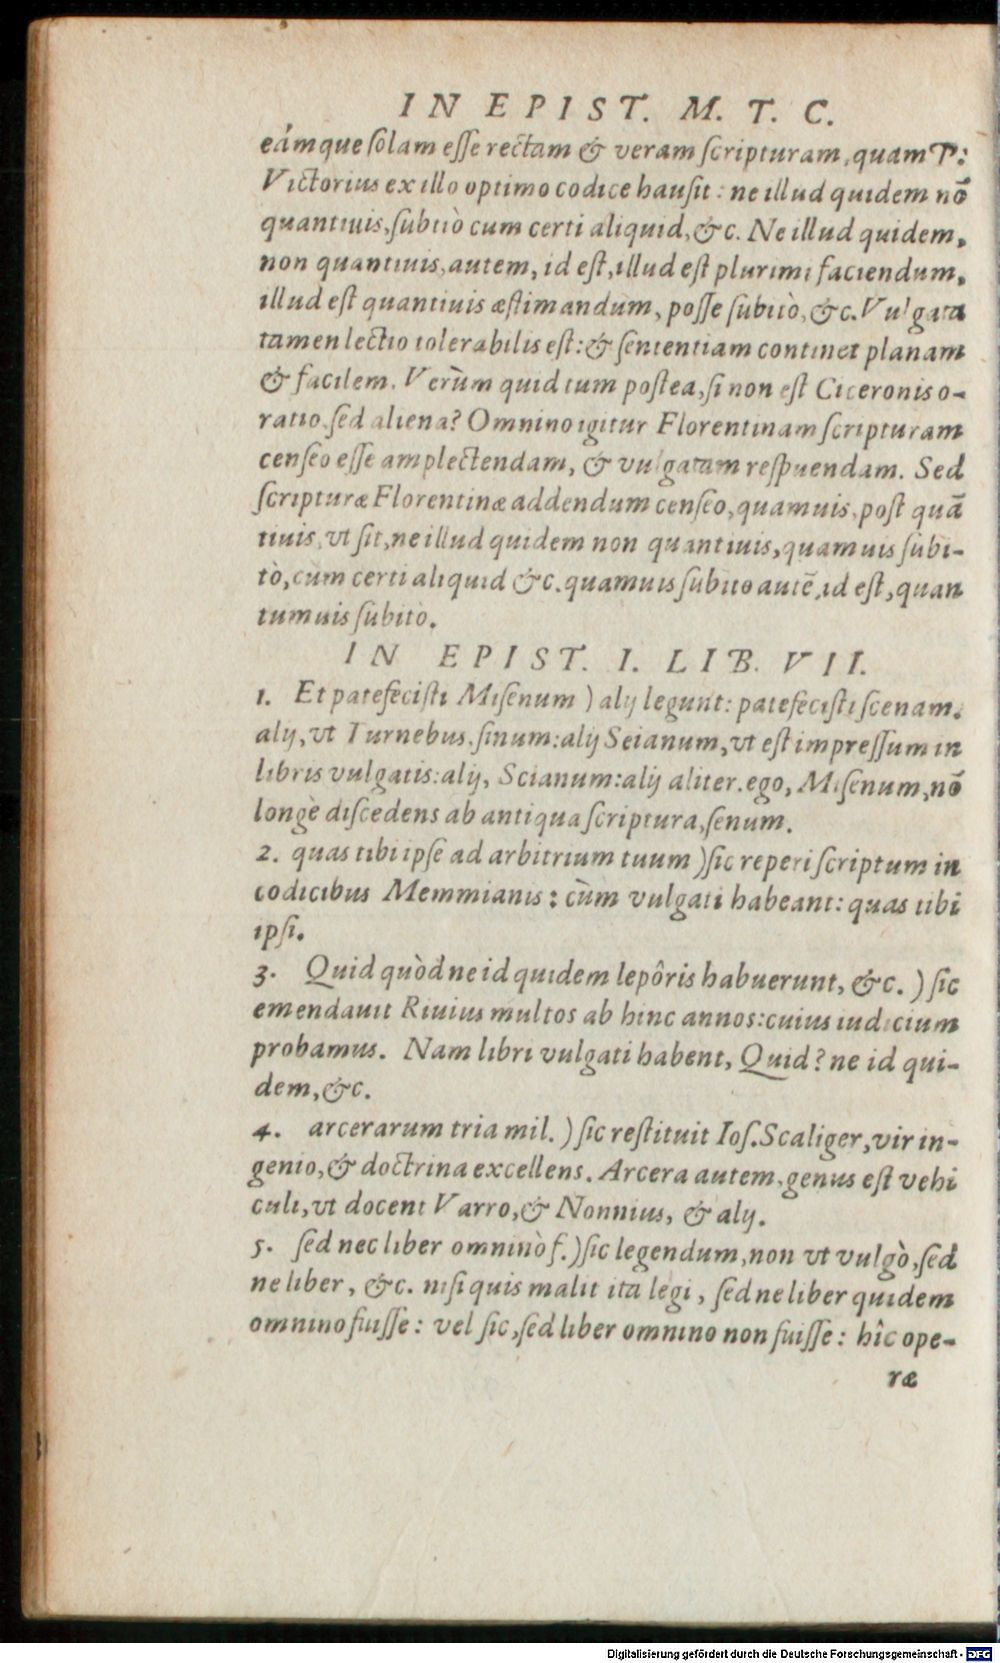 IN EPIST. M. T. C.
eámque solam esse rectam & veram scripturam, quam P:
Victorius ex illo optimo codice hausit: ne illud quidem nō
quantiuis, subitò cum certi aliquid, &c. Ne illud quidem,
non quantiuis, autem, id est, illud est plurimi faciendum,
illud est quantiuis æstimandum, posse subitò, &c. Vulgata
tamen lectio tolerabilis est: & sententiam continet planam
& facilem. Verùm quid tum postea, si non est Ciceronis o-
ratio, sed aliena? Omnino igitur Florentinam scripturam
censeo esse amplectendam, & vulgatam respuendam. Sed
scripturæ Florentinæ addendum censeo, quamuis, post quā
tiuis, vt sit, ne illud quidem non quantiuis, quamuis subi-
tò, cùm certi aliquid &c. quamuis subito autē, id est, quan
tumuis subito.
IN EPIST. I. LIB. VII.
1. Et patefecisti Misenum ) alij legunt: patefecisti scenam.
alij, vt Turnebus. sinum: alij Seianum, vt est impressum in
libris vulgatis: alij, Scianum: alij aliter. ego, Misenum, nō
longè discedens ab antiqua scriptura, senum.
2. quas tibi ipse ad arbitrium tuum ) sic reperi scriptum in
codicibus Memmianis: cùm vulgati habeant: quas tibi
ipsi.
3. Quid quòd ne id quidem lepôris habuerunt, &c. ) sic
emendauit Riuius multos ab hinc annos: cuius iudicium
probamus. Nam libri vulgati habent, Quid? ne id qui-
dem, &c.
4. arcerarum tria mil. ) sic restituit Ios. Scaliger, vir in-
genio, & doctrina excellens. Arcera autem, genus est vehi
culi, vt docent Varro, & Nonnius, & alij.
5. sed nec liber omninò f. ) sic legendum, non vt vulgò, sed
ne liber, &c. nisi quis malit ita legi, sed ne liber quidem
omnino fuisse: vel sic, sed liber omnino non fuisse: hîc ope-
ræ
Digitalisierung gefördert durch die Deutsche Forschungsgemeinschaft - DFG